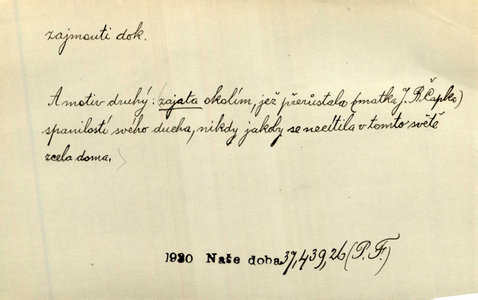 zajmouti dok.
A motiv druhý: zajata okolím, jež přerůstala (matka J. B. Čapka)
spanilostí svého ducha, nikdy jakoby se necítila v tomto světě
zcela doma.
1930 Naše doba 37,439,26 (P. F.)